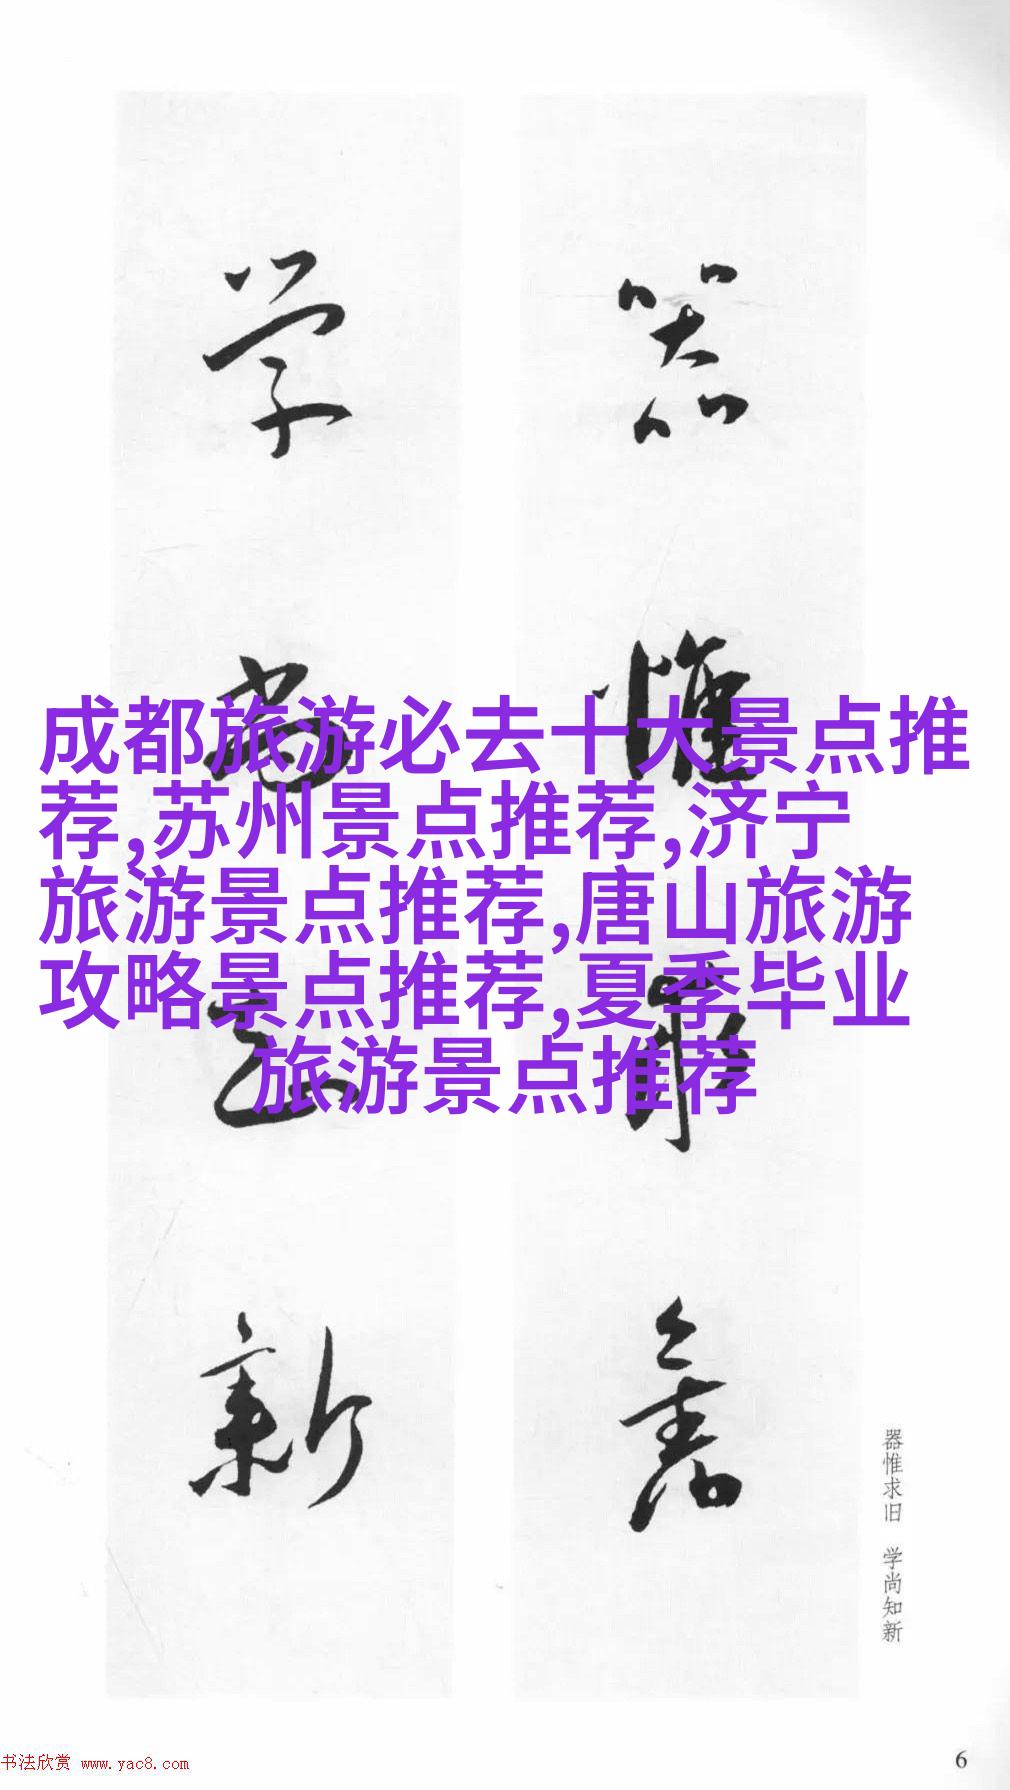 器惟求舊
学尚知新
成都旅游必去十大景点推
荐,苏州景点推荐,济宁
旅游景点推荐,唐山旅游
攻略景点推荐,夏季毕业
旅游景点推荐
器惟求旧 学尚知新
书法欣赏 www.yac8.com
6